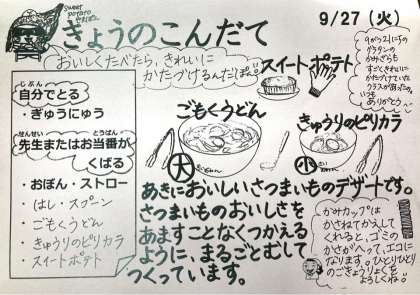 Sweet
potato
やまだ
きょうのこんだて
9/27(火)
おいしくたべたら、きれいに
かたづけるんだぽん。
スイートポテト
9がつ21にちの
グラタンの
かみざらも
すごくきれいに
かたづけていた
クラスがあったの。
いつも
ありがとう。
自分でとる
じぶん
・ぎゅうにゅう
先生またはお当番が
せんせい
とうばん
くばる
・おぼん・ストロー
・はし・スプーン
・ごもくうどん
・きゅうりのピリカラ
・スイートポテト
ごもくうどん
大
きゅうりのピリカラ
小
あきにおいしいさつまいものデザートです。
さつまいものおいしさを
あますことなくつかえる
ように、まるごとむして
つくっています。
かみカップは
かさねてかえして
くれると、ゴミの
かさがへって、エコに
なります。ひとりひとり
のごきょうりょくを
よろしくね!